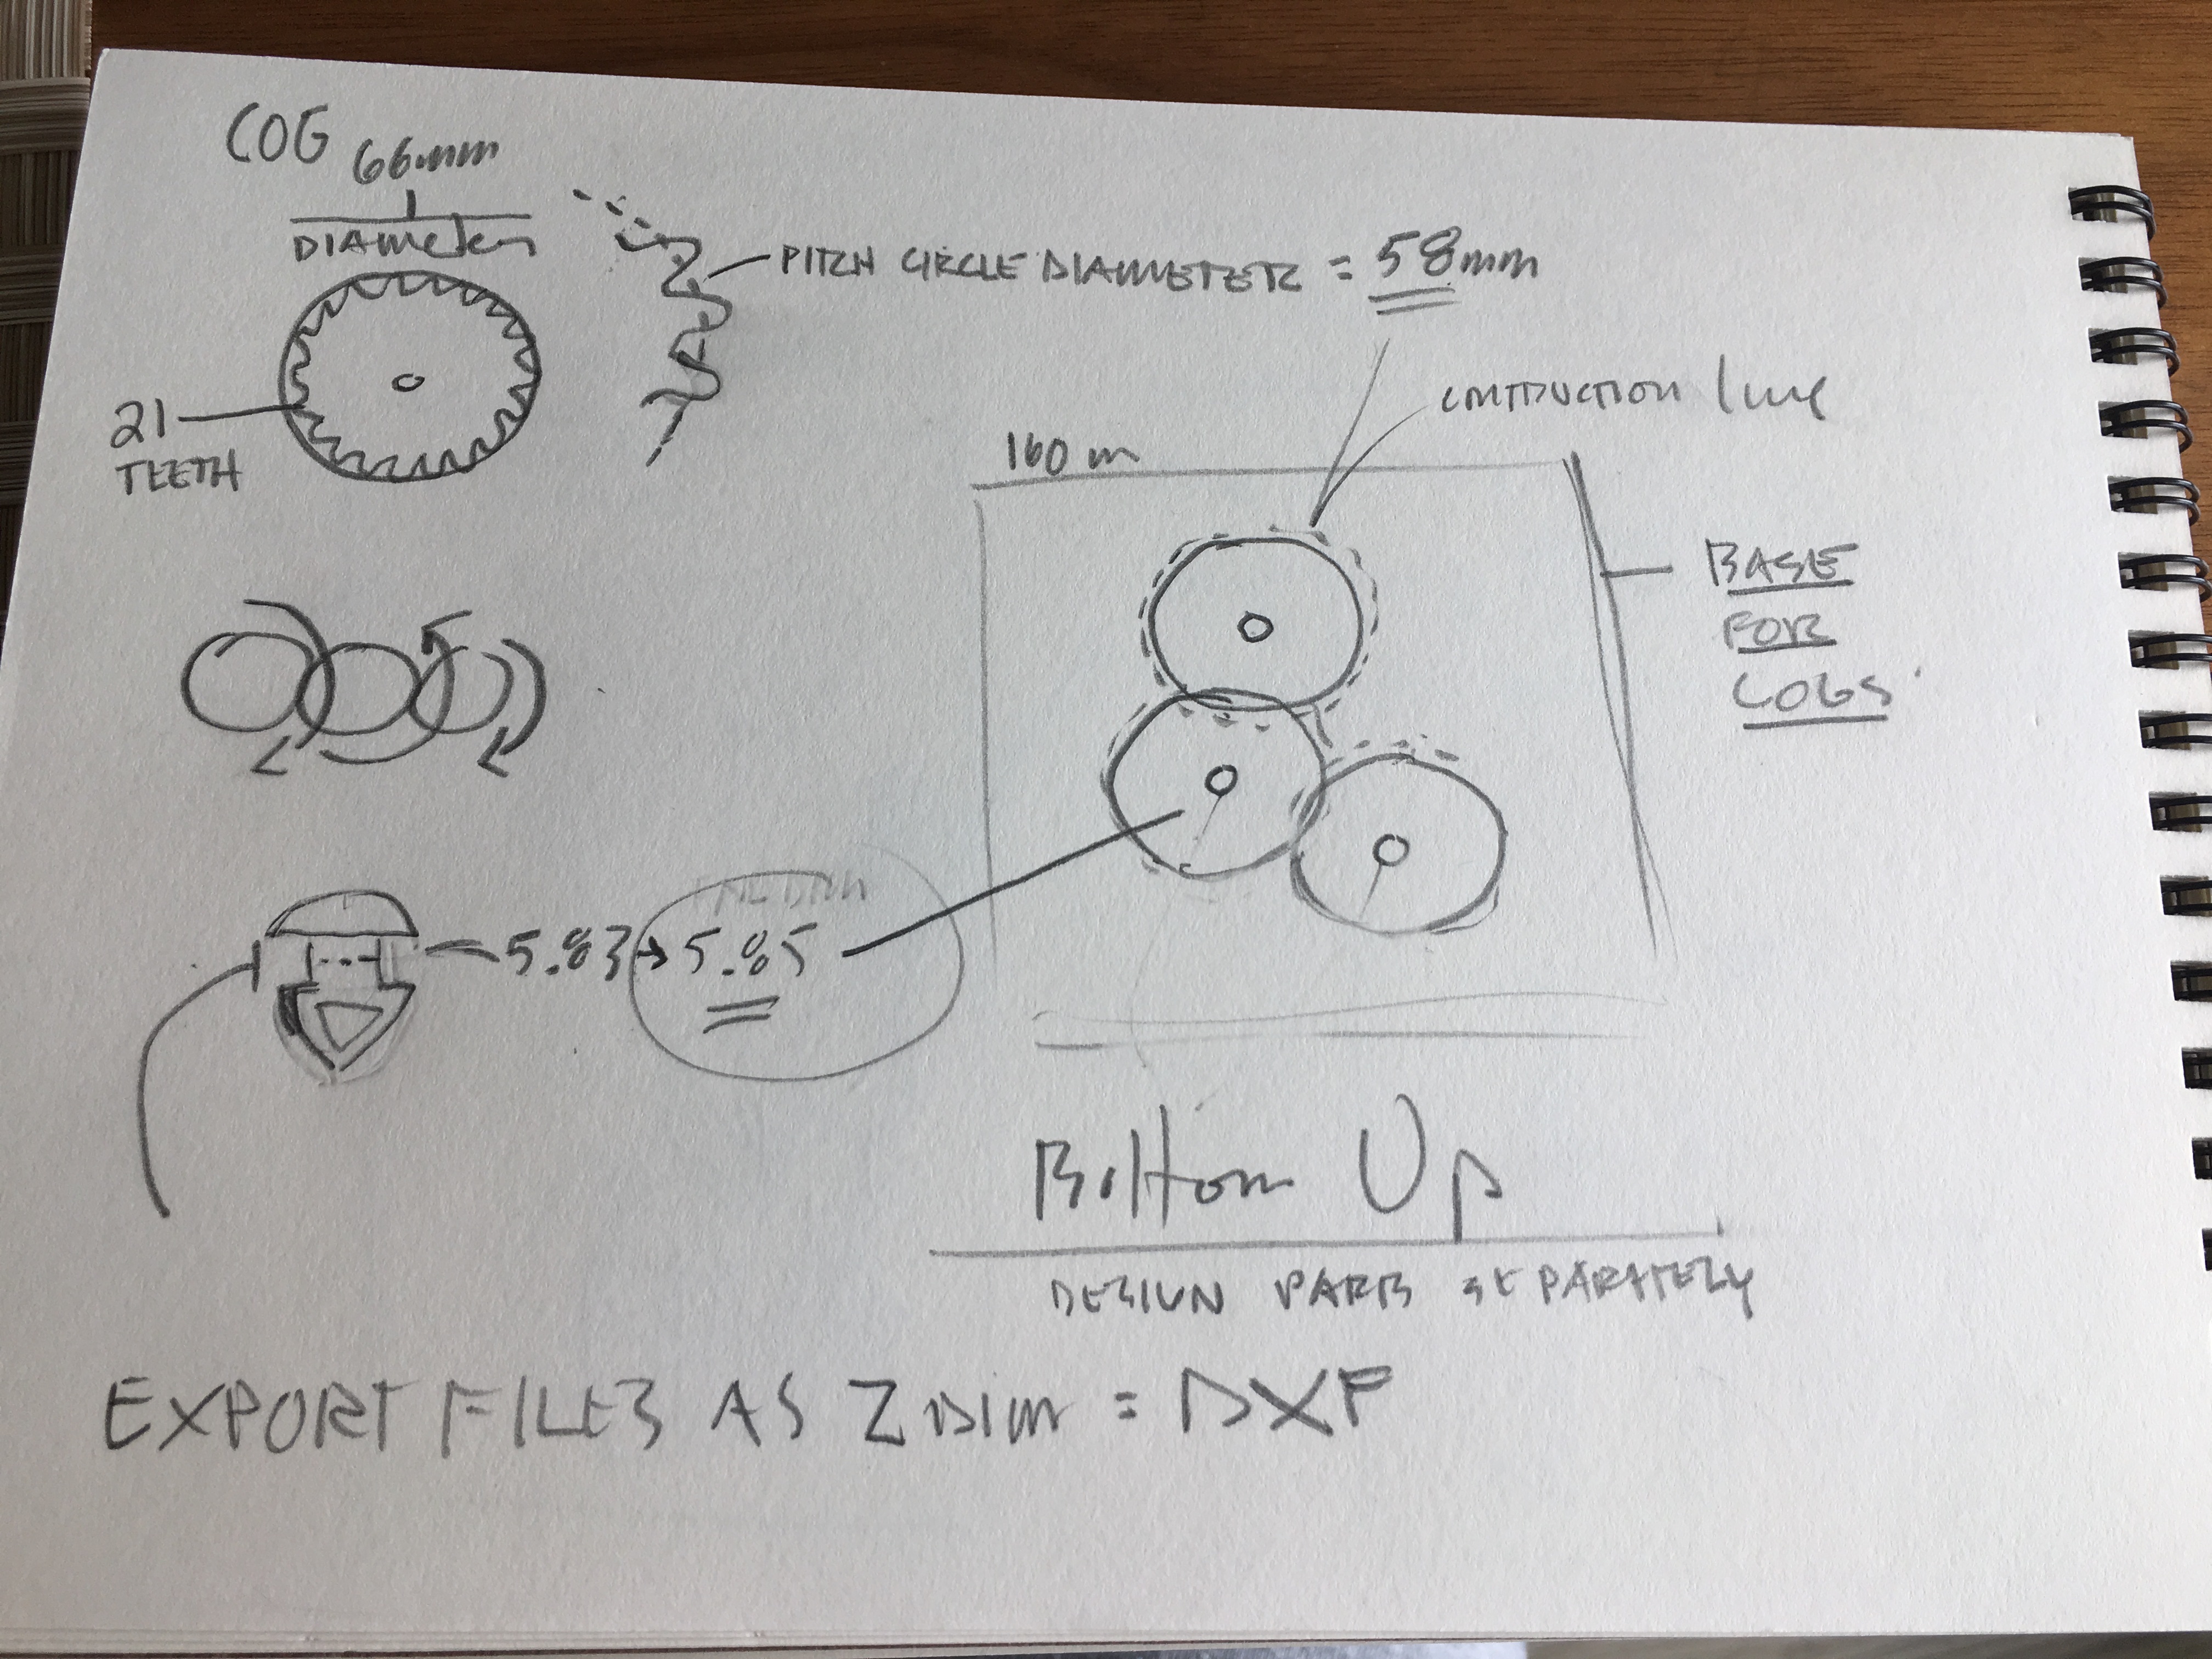 COG
66mm
DIAMETER
PITCH CIRCLE DIAMETER = 58mm
21
TEETH
CONTRUCTION line
160 m
BASE
FOR
COGS
5.83 → 5.85
Bottom Up
DESIGN PARTS SEPARATELY
EXPORT FILES AS Z DIM = DXF